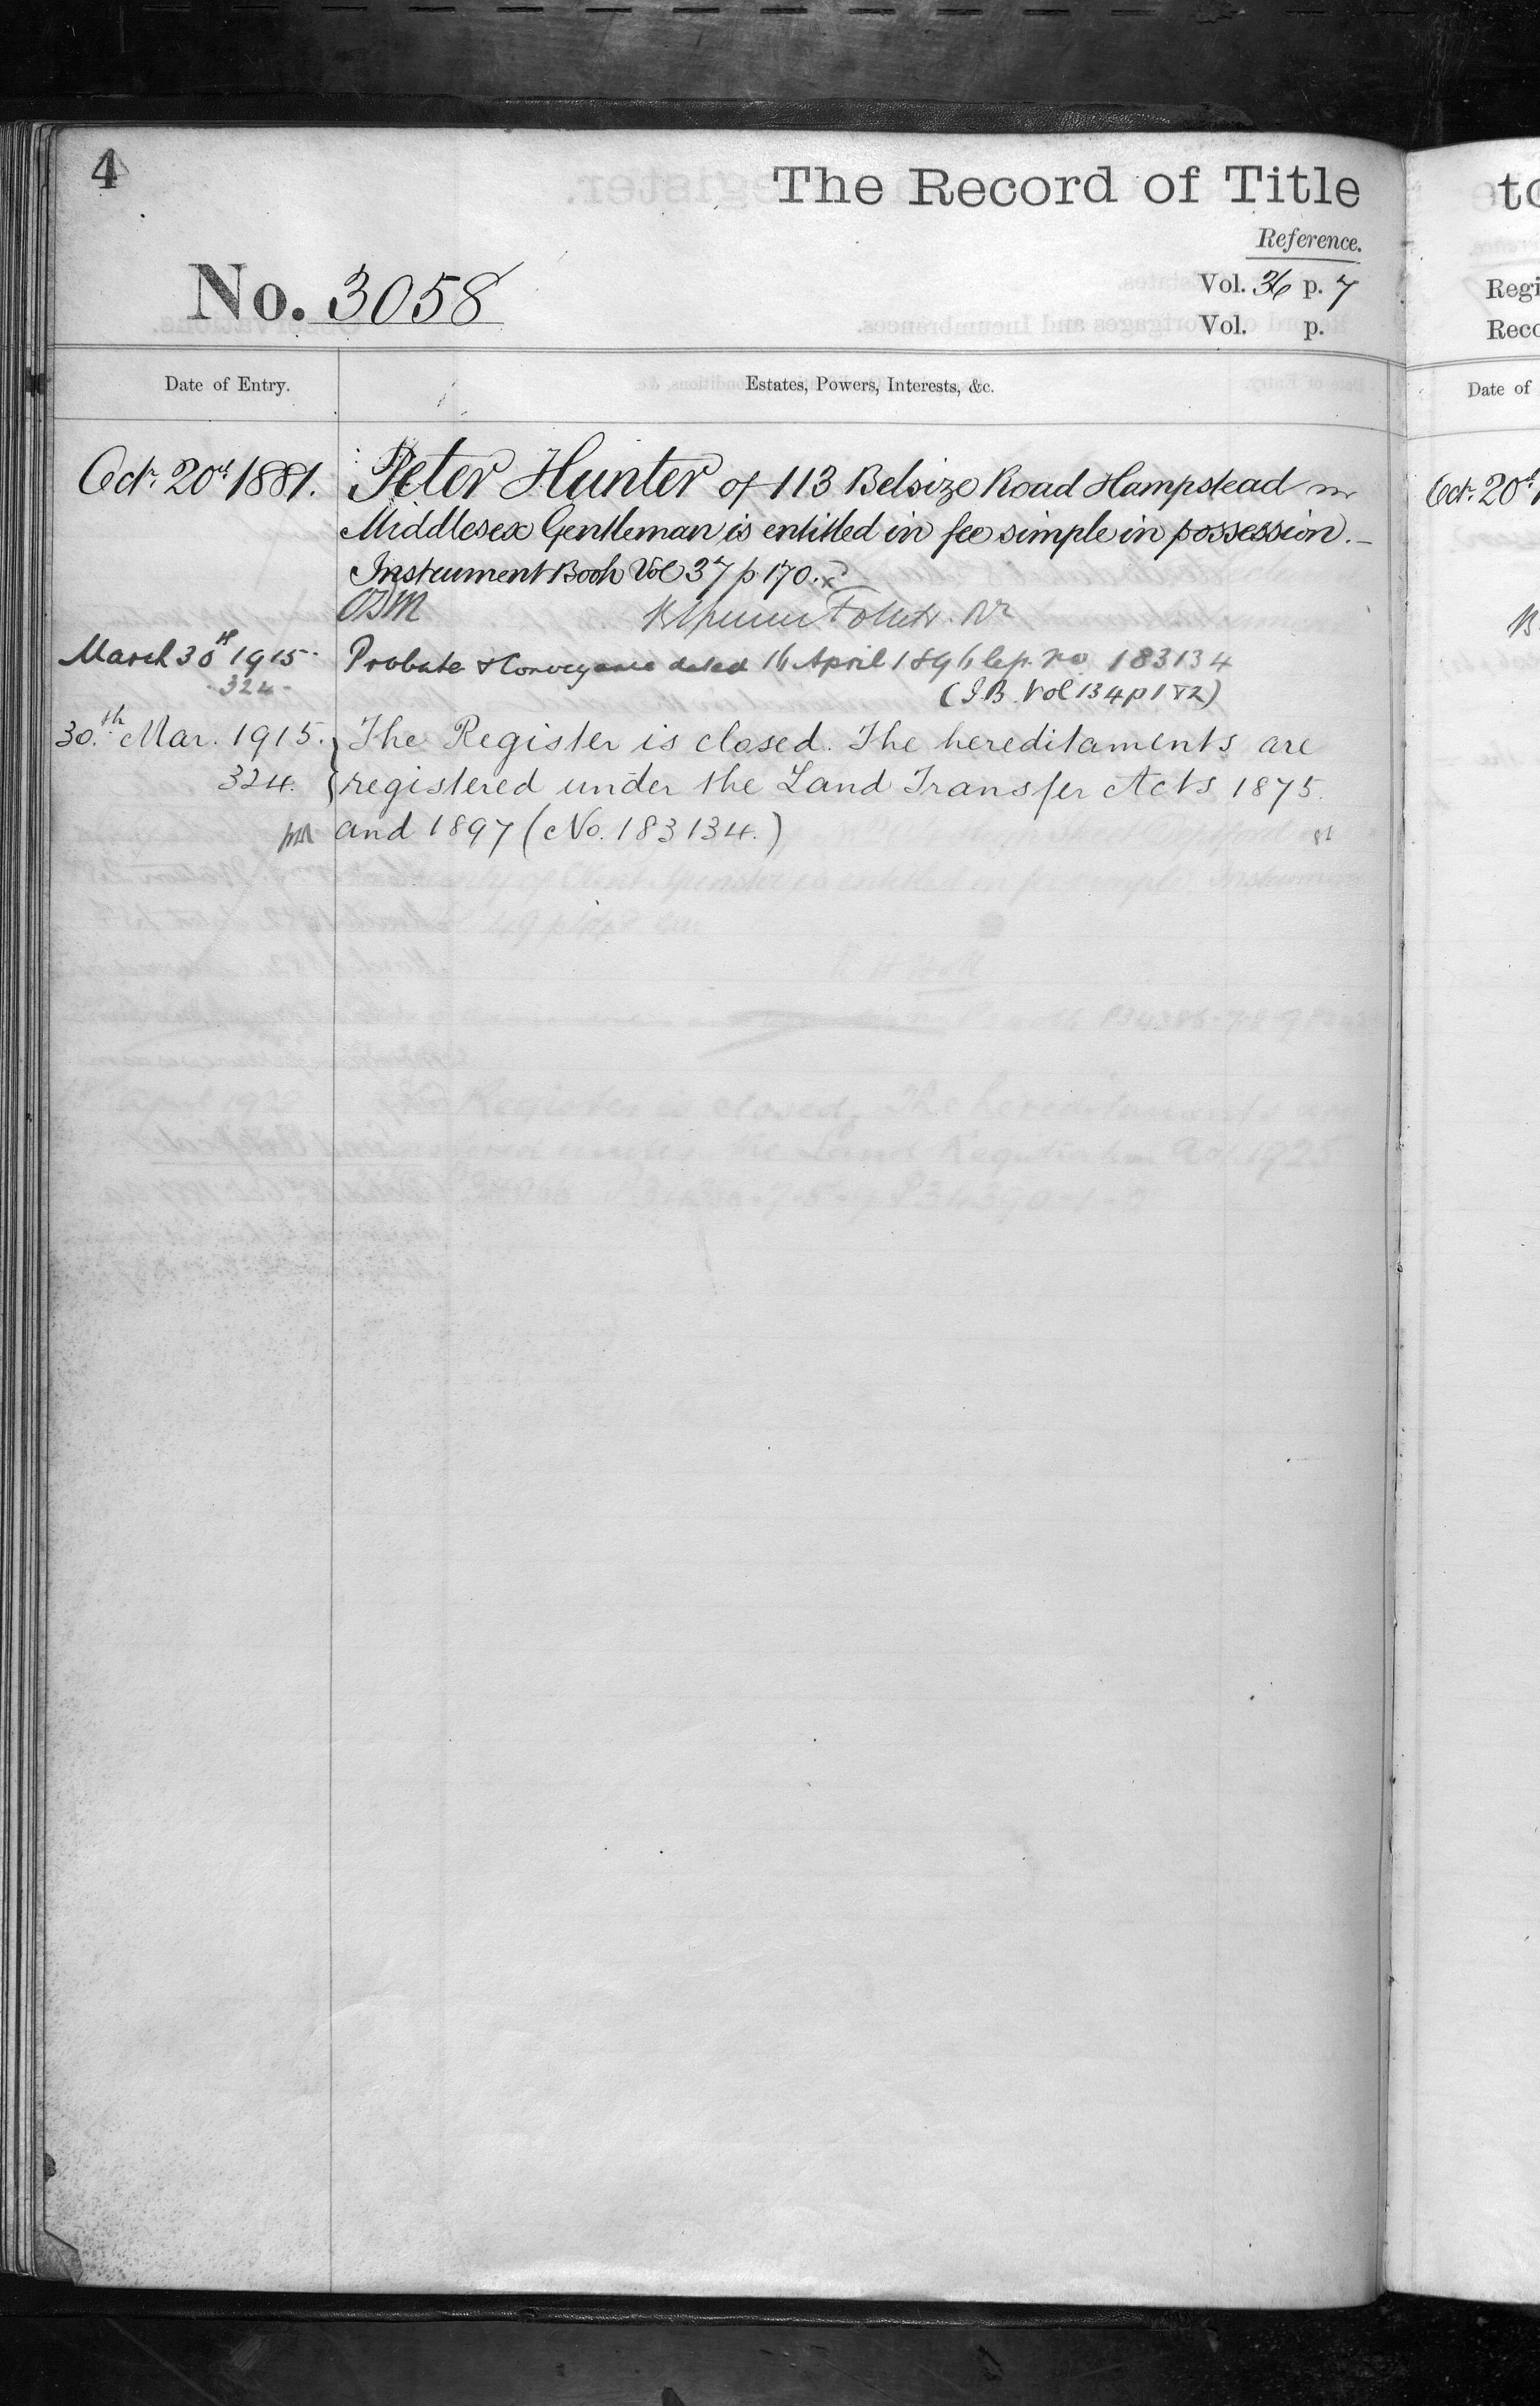 4
The Record of Title
Reference.
No. 3058
Vol. 36 p. 7
Vol. p.
Date of Entry.
Estates, Powers, Interests, &c.
Octr. 20th 1881.
Peter Hunter of 113 Belsize Road Hampstead in
Middlesex Gentleman is entitled in fee simple in possession.
Instrument Book Vol 37 p 170.
March 30th 1915
324
Probate & Conveyance dated 16 April 1896 No 183134
(I.B. Vol 134 p 182)
30.th Mar. 1915.
324.
The Register is closed. The hereditaments are
registered under the Land Transfer Acts 1875.
and 1897 (No. 183134.)
to
Regi
Reco
Date of
Octr. 20th